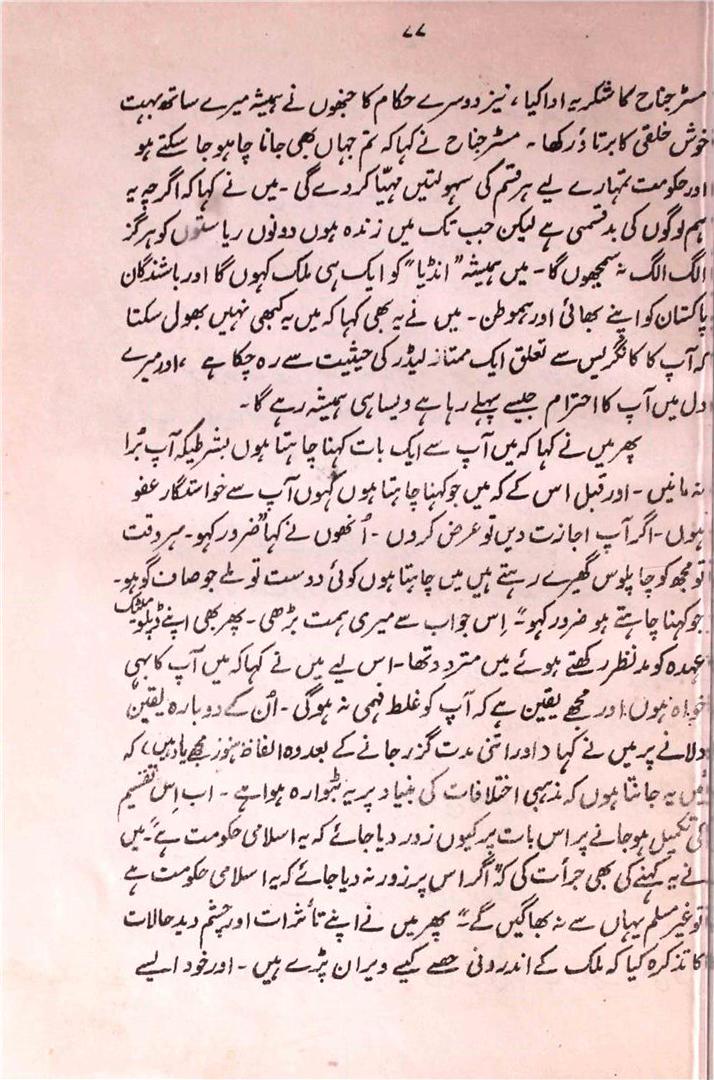 ۷۷
مسٹر جناح کا شکریہ ادا کیا، نیز دوسرے حکام کا جنھوں نے ہمیشہ میرے ساتھ بہت
خوش خلقی کا برتاؤ رکھا۔ مسٹر جناح نے کہا کہ تم جہاں بھی جانا چاہو جا سکتے ہو
اور حکومت تمہارے لیے ہر قسم کی سہولتیں مہیّا کر دے گی۔ میں نے کہا کہ اگرچہ یہ
ہم لوگوں کی بدقسمی ہے لیکن جب تک میں زندہ ہوں دونوں ریاستوں کو ہرگز
الگ الگ نہ سمجھوں گا۔ میں ہمیشہ "انڈیا" کو ایک ہی ملک کہوں گا اور باشندگان
پاکستان کو اپنے بھائی اور ہموطن۔ میں نے یہ بھی کہا کہ میں یہ کبھی نہیں بھول سکتا
کہ آپ کا کانگریس سے تعلق ایک ممتاز لیڈر کی حیثیت سے رہ چکا ہے، اور میرے
دل میں آپ کا احترام جیسے پہلے رہا ہے ویسا ہی ہمیشہ رہے گا۔
پھر میں نے کہا کہ میں آپ سے ایک بات کہنا چاہتا ہوں بشرطیکہ آپ بُرا
نہ مانیں۔ اور قبل اس کے کہ میں جو کہنا چاہتا ہوں کہوں آپ سے خواستگار عفو
ہوں۔ اگر آپ اجازت دیں تو عرض کروں۔ اُنھوں نے کہا "ضرور کہو۔ ہر وقت
تو مجھ کو چاپلوس گھیرے رہتے ہیں میں چاہتا ہوں کوئی دوست تو ملے جو صاف گو ہو۔
جو کہنا چاہتے ہو ضرور کہو"۔ اِس جواب سے میری ہمت بڑھی۔ پھر بھی اپنے ڈپلومیٹک
عہدہ کو مدنظر رکھتے ہوئے میں متردد تھا۔ اس لیے میں نے کہا کہ میں آپ کا بہی
خواہ ہوں اور مجھے یقین ہے کہ آپ کو غلط فہمی نہ ہوگی۔ اُن کے دوبارہ یقین
دلانے پر میں نے کہا (اور اتنی مدت گزر جانے کے بعد وہ الفاظ ہنوز مجھے یاد ہیں) کہ
"میں یہ جانتا ہوں کہ مذہبی اختلافات کی بنیاد پر یہ بٹوارہ ہوا ہے۔ اب اِس تقسیم
کی تکمیل ہو جانے پر اس بات پر کیوں زور دیا جائے کہ یہ اسلامی حکومت ہے"۔ میں
نے یہ کہنے کی بھی جرأت کی کہ "اگر اس پر زور نہ دیا جائے کہ یہ اسلامی حکومت ہے
تو غیر مسلم یہاں سے نہ بھاگیں گے"۔ پھر میں نے اپنے تأثرات اور چشم دید حالات
کا تذکرہ کیا کہ ملک کے اندرونی حصے کیسے ویران پڑے ہیں۔ اور خود ایسے